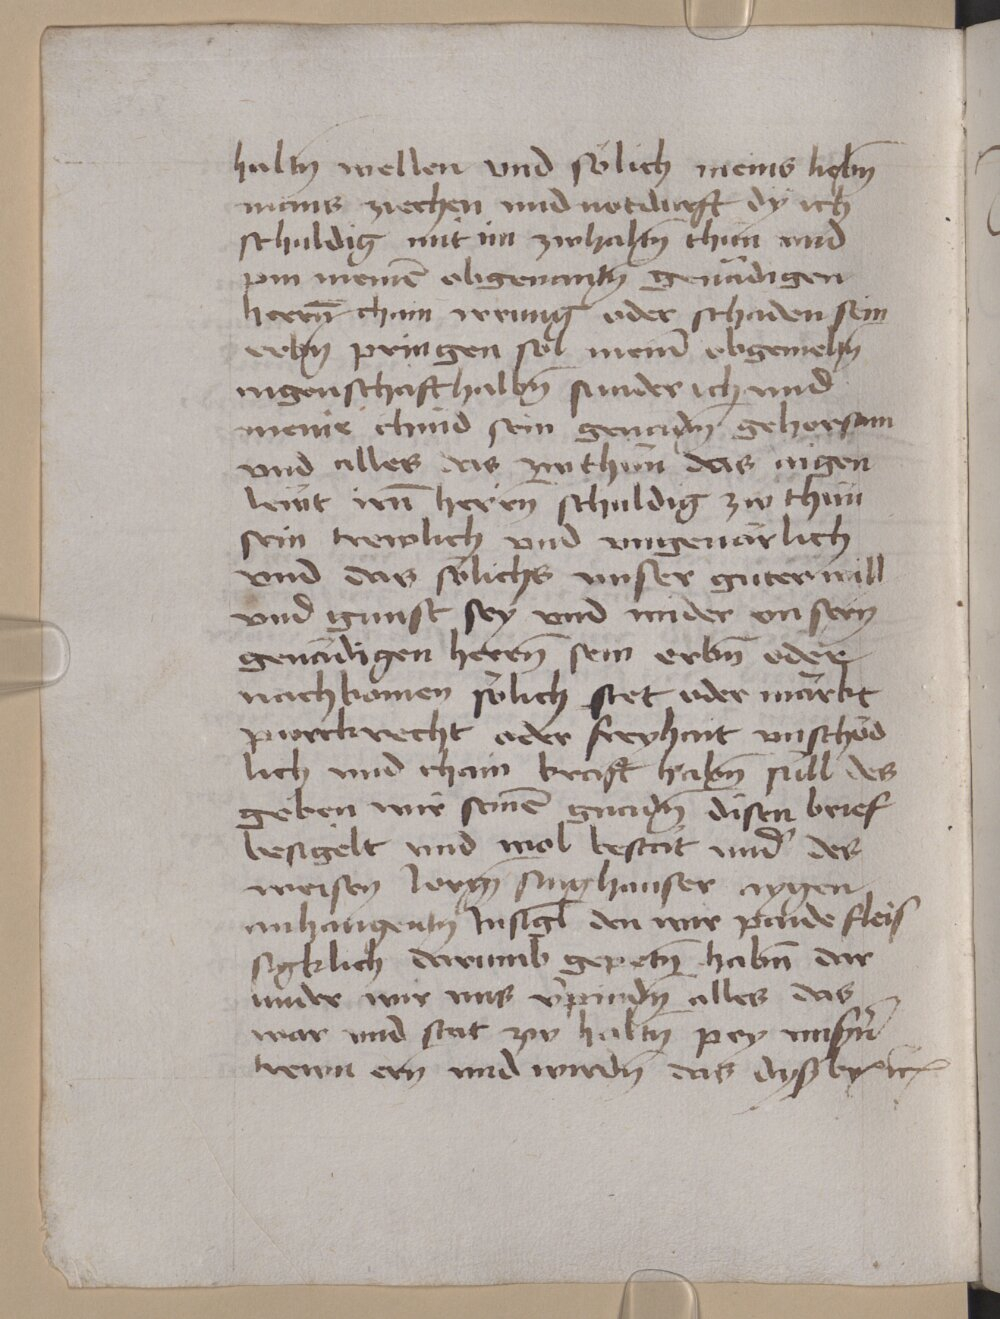 haltn̄ wellen vnd sölich meins liebn̄
mans ziechen und notdurft dy ich
schuldig mit im zwhaltn̄ thun vnd
pin meinē obgenantn̄ genädigen
herrn̄ chain irrung oder schaden sein
erbn̄ pringen sol meinr̄ obgemeltn̄
aigenschafthalbn̄ sunder ich und
meine chind sein genadn̄ gehorsam
vnd alles das zwthün das aigen
lewt irn̄ herrn̄ schuldig zw thün
sein trewlich vnd vngenärlich
vnd das sölichs vnser guter will
vnd gunst sey vnd vnder vnsern̄
genädigen herrn̄ sein erbn̄ oder
nachkomen sölich stet oder märkt
purckrecht oder freyhait vnschöd
lich vnd chain kraft habn̄ süll des
geben wir seinē gnadn̄ disen brief
besigelt und wol bestät und' des
weisen aygen
anhangentn̄ Insigl den wir paide fleis
sigklich darumb gepetn̄ habn̄ dar
under wir uns v'pindn̄ alles das
war und stät zw haltn̄ pey unsn̄
trewn ern̄ und wirdn̄ das